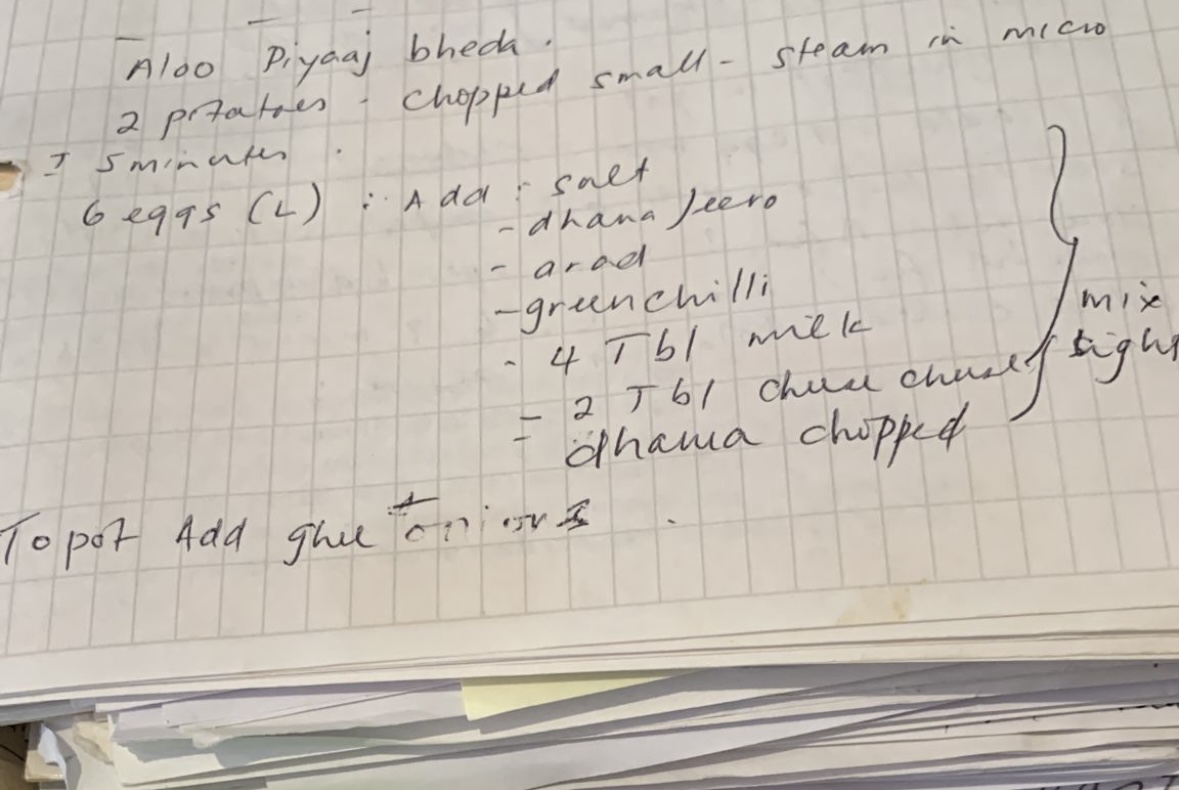 Aloo Piyaaj bheda.
2 potatoes - chopped small - steam in micro
I 5 minutes.
6 eggs (L) : Add : salt
- dhana Jeero
- arad
- green chilli
- 4 Tbl milk
- 2 Tbl
- dhania chopped
mix
To pot Add ghee + onions.